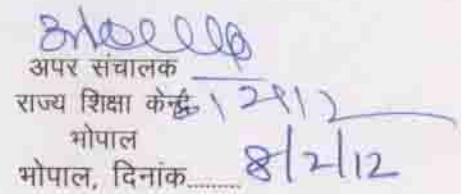 अपर संचालक
राज्य शिक्षा केन्द्र
भोपाल
भोपाल, दिनांक......... 8/2/12